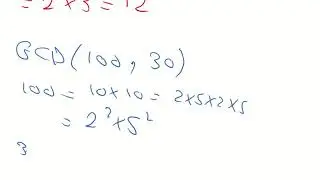 = 2 × 3 = 12
GCD(100, 30)
100 = 10×10 = 2×5×2×5
= 2²×5²
3